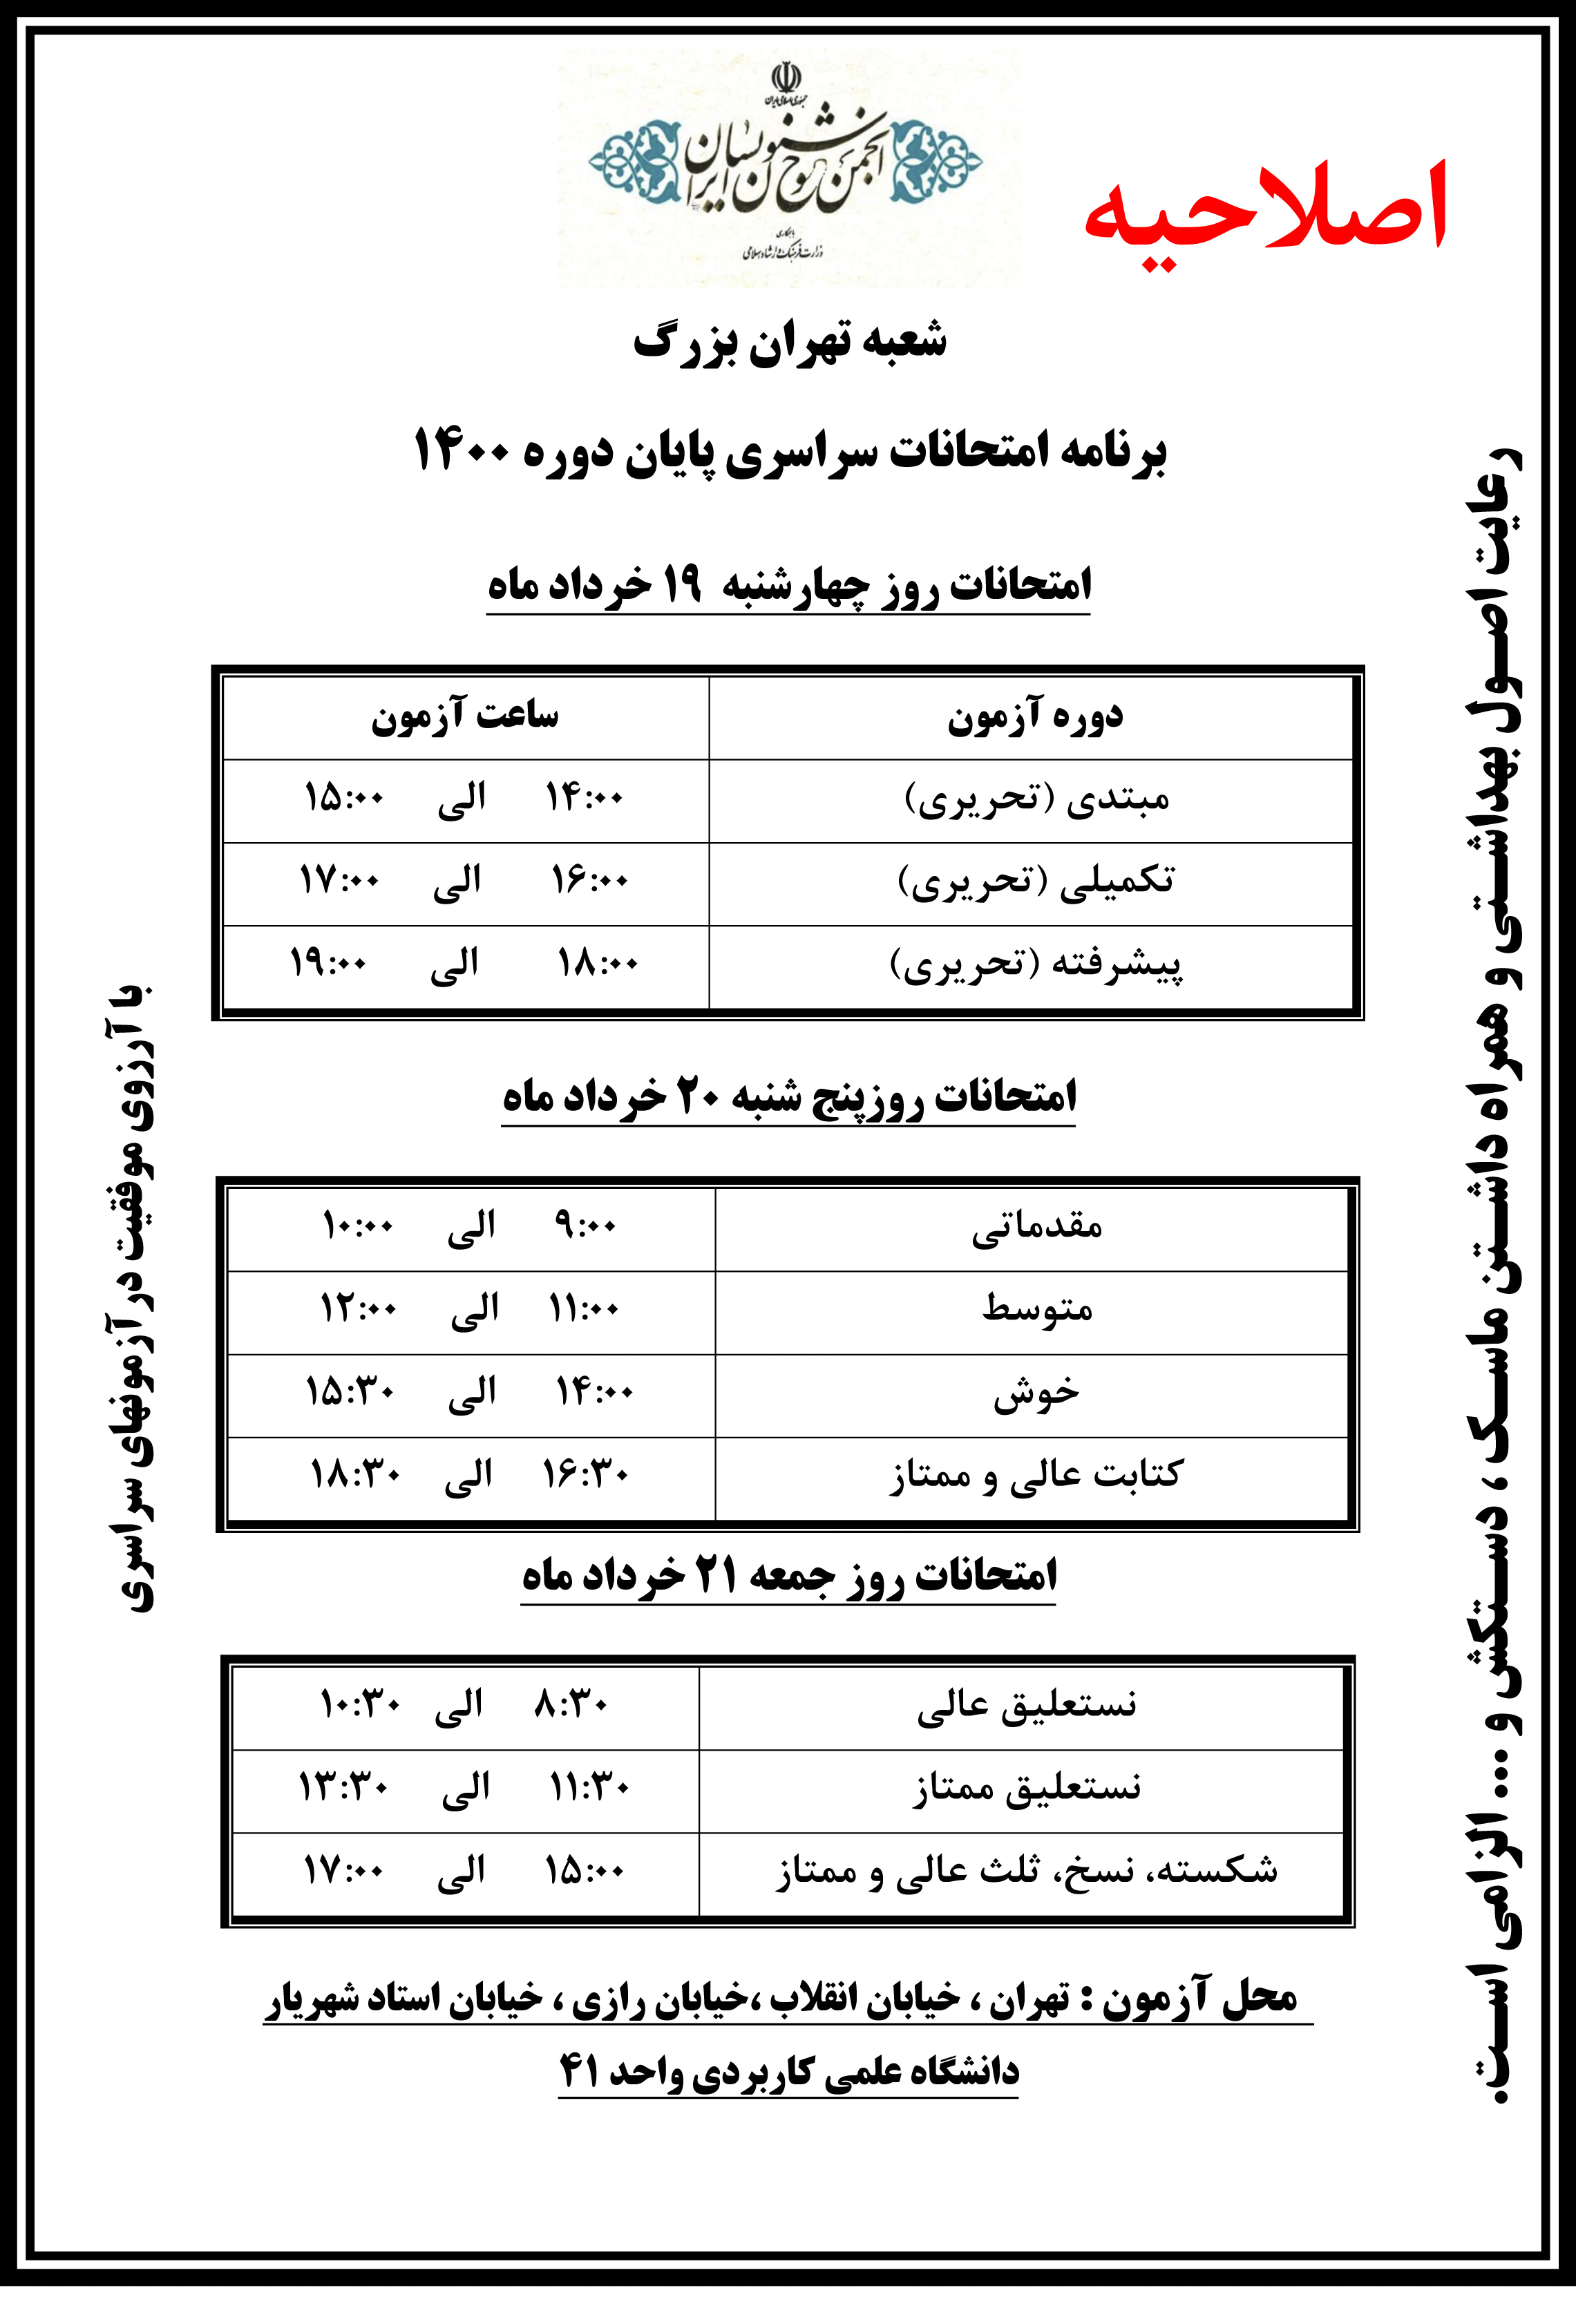 جمهوری اسلامی ایران
انجمن خوشنویسان ایران
باهمکاری
وزارت فرهنگ و ارشاد اسلامی
اصلاحیه
شعبه تهران بزرگ
برنامه امتحانات سراسری پایان دوره ۱۴۰۰
امتحانات روز چهارشنبه ۱۹ خرداد ماه
دوره آزمون ساعت آزمون
مبتدی (تحریری) ۱۴:۰۰ الی ۱۵:۰۰
تکمیلی (تحریری) ۱۶:۰۰ الی ۱۷:۰۰
پیشرفته (تحریری) ۱۸:۰۰ الی ۱۹:۰۰
امتحانات روزپنج شنبه ۲۰ خرداد ماه
مقدماتی ۹:۰۰ الی ۱۰:۰۰
متوسط ۱۱:۰۰ الی ۱۲:۰۰
خوش ۱۴:۰۰ الی ۱۵:۳۰
کتابت عالی و ممتاز ۱۶:۳۰ الی ۱۸:۳۰
امتحانات روز جمعه ۲۱ خرداد ماه
نستعلیق عالی ۸:۳۰ الی ۱۰:۳۰
نستعلیق ممتاز ۱۱:۳۰ الی ۱۳:۳۰
شکسته، نسخ، ثلث عالی و ممتاز ۱۵:۰۰ الی ۱۷:۰۰
محل آزمون : تهران ، خیابان انقلاب ،خیابان رازی ، خیابان استاد شهریار
دانشگاه علمی کاربردی واحد ۴۱
رعایت اصـول بهداشـتی و همراه داشـتن ماسـک ، دسـتکش و ... الزامی اسـت.
با آرزوی موفقیت در آزمونهای سراسری